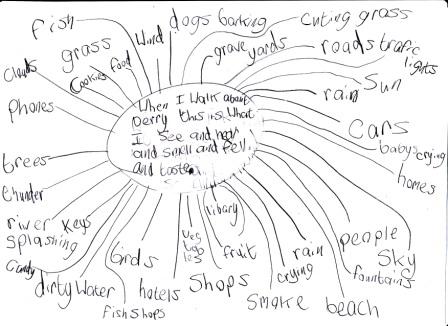 fish
Wind
dogs barking
cuting grass
grass
grave yards
roads trafic
lights
Clouds
Cookies
food
Sun
rain
phones
When I walk about
perry this is what
I see and hear
and smell and fell
and taste
Cars
babys crying
homes
trees
thunder
river
splashing
keys
Candy
dirty water
birds
fish shops
hotels
veg
libary
fruit
Shops
rain
crying
smoke
beach
people
Sky
fountains